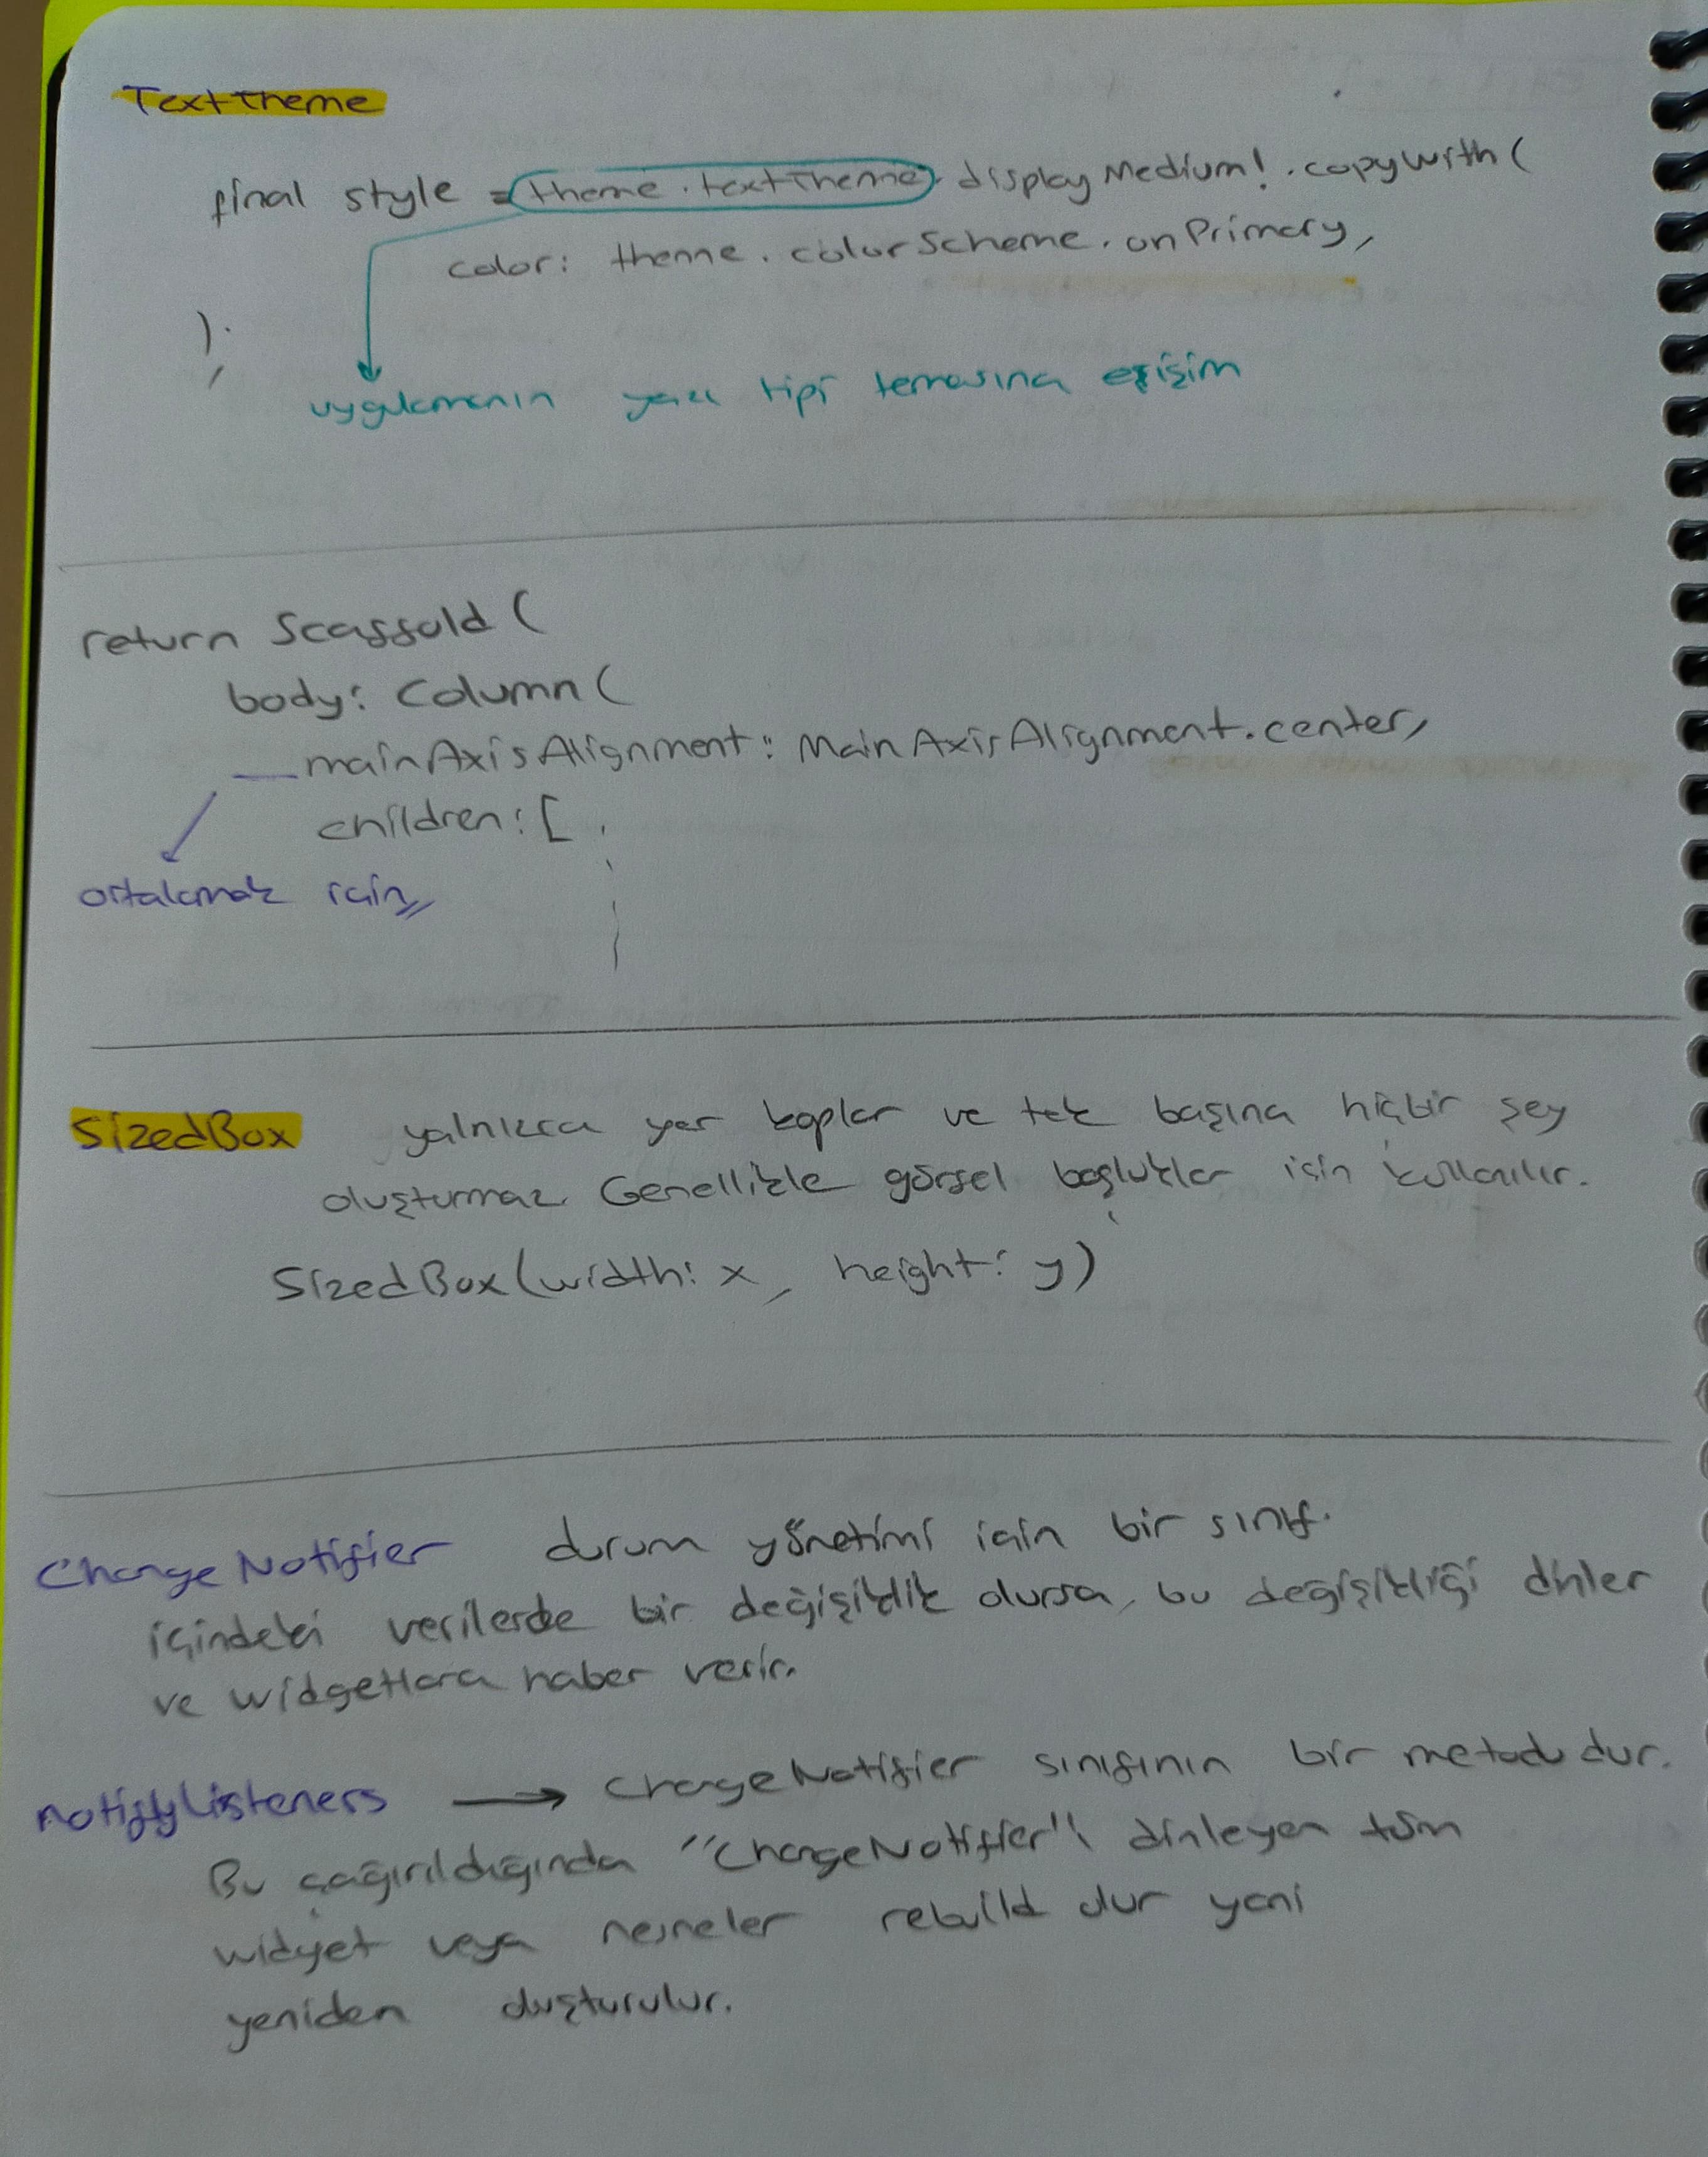 TextTheme
final style = theme.textTheme.displayMedium!.copyWith(
color: theme.colorScheme.onPrimary,
);
uygulamanın yazı tipi temasına erişim
return Scaffold (
body: Column (
mainAxisAlignment: MainAxisAlignment.center,
children: [
ortalamak için
SizedBox yalnızca yer kaplar ve tek başına hiçbir şey
oluşturmaz. Genellikle görsel boşluklar için kullanılır.
SizedBox(width: x, height: y)
ChangeNotifier durum yönetimi için bir sınıf.
içindeki verilerde bir değişiklik olursa, bu değişikliği dinler
ve widgetlara haber verir.
notifyListeners → ChangeNotifier sınıfının bir metodudur.
Bu çağırıldığında "ChangeNotifier"ı dinleyen tüm
widget veya nesneler rebuild olur yani
yeniden oluşturulur.